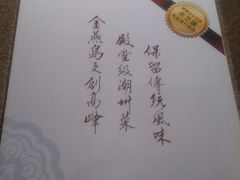 保留傳統風味
殿堂級潮州菜
金燕島文創高峰